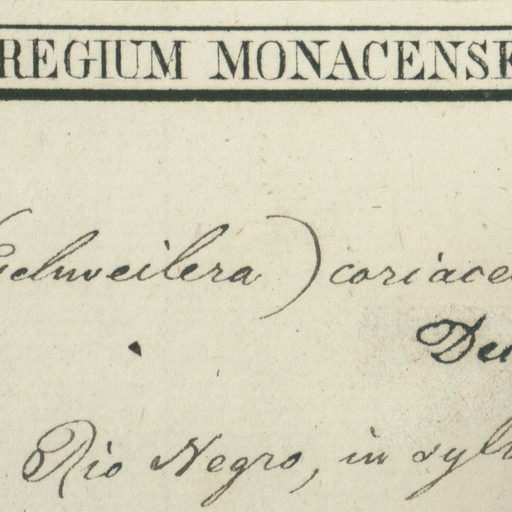 REGIUM MONACENSE
(Eschweilera) coriacea
Rio Negro, in sylv